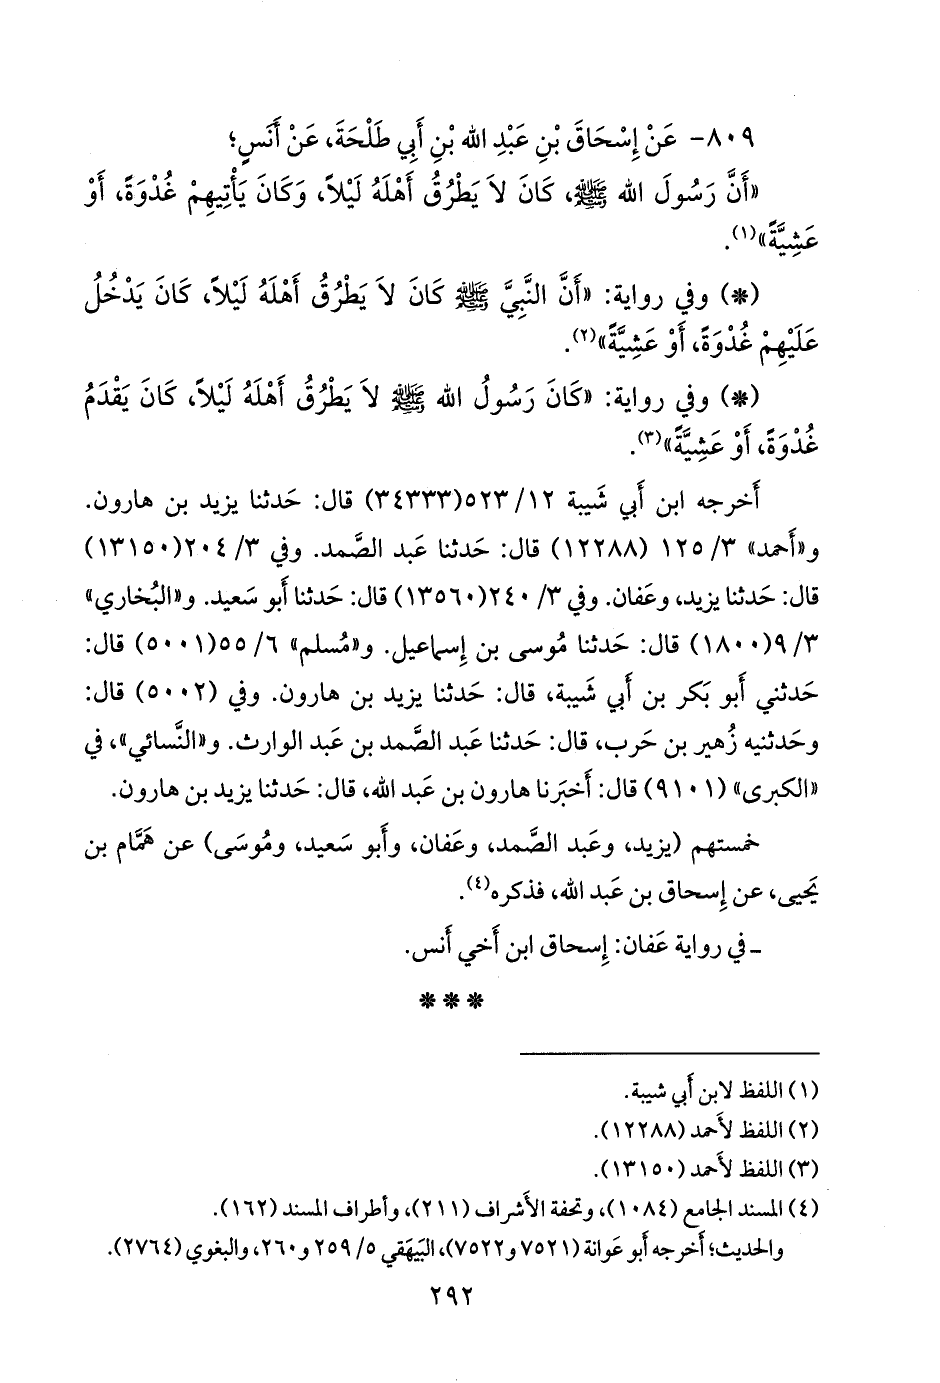 ٨٠٩- عَنْ إِسْحَاقَ بْنِ عَبْدِ الله بْنِ أَبِي طَلْحَةَ، عَنْ أَنَسٍ؛
«أَنَّ رَسُولَ الله ﷺ، كَانَ لاَ يَطْرُقُ أَهْلَهُ لَيْلاً، وَكَانَ يَأْتِيهِمْ غُدْوَةً، أَوْ
عَشِيَّةً»(١).
(*) وفي رواية: «أَنَّ النَّبِيَّ ﷺ كَانَ لاَ يَطْرُقُ أَهْلَهُ لَيْلاً، كَانَ يَدْخُلُ
عَلَيْهِمْ غُدْوَةً، أَوْ عَشِيَّةً»(٢).
(*) وفي رواية: «كَانَ رَسُولُ الله ﷺ لاَ يَطْرُقُ أَهْلَهُ لَيْلاً، كَانَ يَقْدَمُ
غُدْوَةً، أَوْ عَشِيَّةً»(٣).
أَخرجه ابن أَبي شَيبة ١٢/ ٥٢٣(٣٤٣٣٣) قال: حَدثنا يزيد بن هارون.
و«أَحمد» ٣/ ١٢٥ (١٢٢٨٨) قال: حَدثنا عَبد الصَّمد. وفي ٣/ ٢٠٤(١٣١٥٠)
قال: حَدثنا يزيد، وعَفان. وفي ٣/ ٢٤٠(١٣٥٦٠) قال: حَدثنا أَبو سَعيد. و«البُخاري»
٣/ ٩(١٨٠٠) قال: حَدثنا مُوسى بن إِسماعيل. و«مُسلم» ٦/ ٥٥(٥٠٠١) قال:
حَدثني أَبو بَكر بن أَبي شَيبة، قال: حَدثنا يزيد بن هارون. وفي (٥٠٠٢) قال:
وحَدثنيه زُهير بن حَرب، قال: حَدثنا عَبد الصَّمد بن عَبد الوارث. و«النَّسائي»، في
«الكبرى» (٩١٠١) قال: أَخبَرنا هارون بن عَبد الله، قال: حَدثنا يزيد بن هارون.
خمستهم (يزيد، وعَبد الصَّمد، وعَفان، وأَبو سَعيد، ومُوسَى) عن هَمَّام بن
يَحيى، عن إِسحاق بن عَبد الله، فذكره(٤).
ـ في رواية عَفان: إِسحاق ابن أَخي أَنس.
* * *
(١) اللفظ لابن أَبي شيبة.
(٢) اللفظ لأَحمد (١٢٢٨٨).
(٣) اللفظ لأَحمد (١٣١٥٠).
(٤) المسند الجامع (١٠٨٤)، وتحفة الأَشراف (٢١١)، وأطراف المسند (١٦٢).
والحديث؛ أَخرجه أَبو عَوانة (٧٥٢١ و٧٥٢٢)، البَيهَقي ٥/ ٢٥٩ و٢٦٠، والبغوي (٢٧٦٤).
٢٩٢